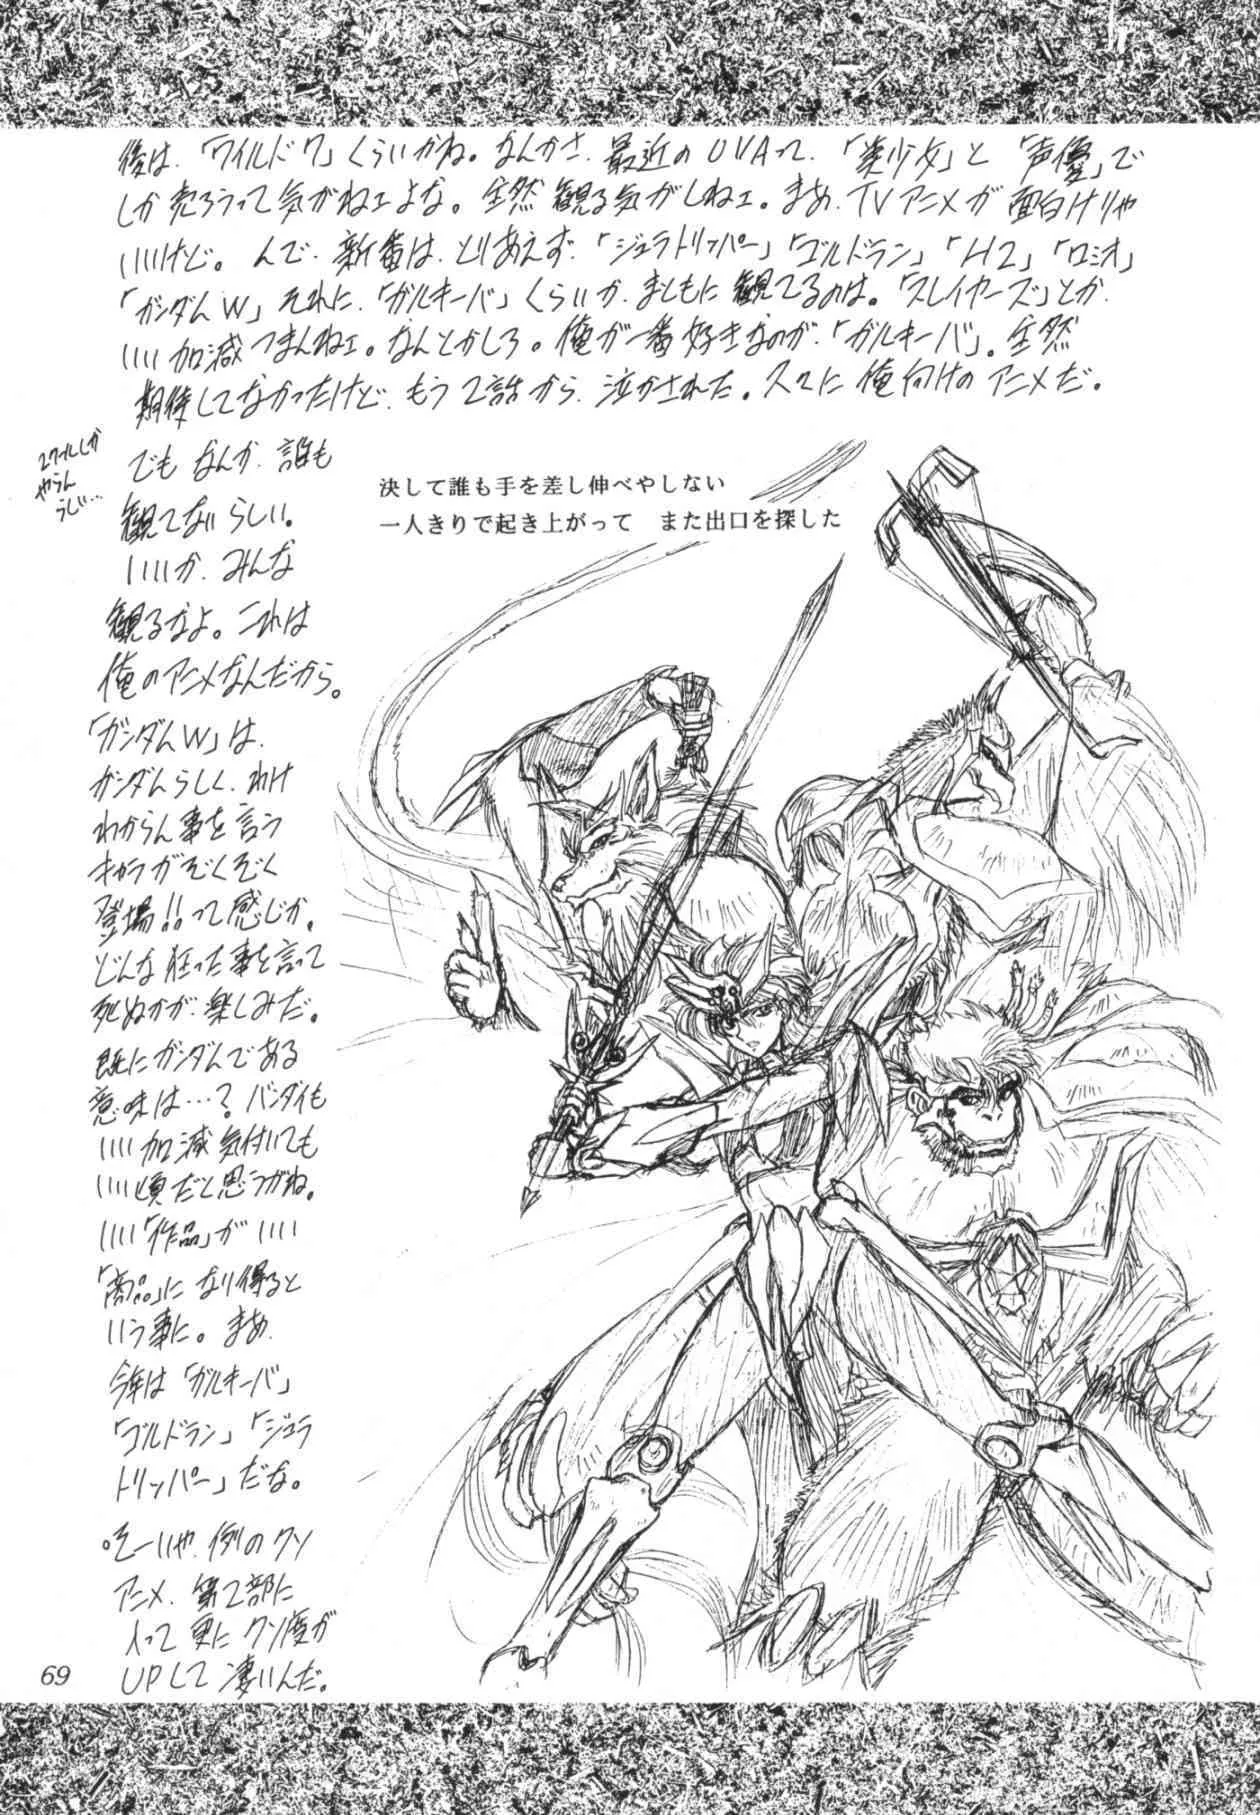 後は、「ワイルド7」くらいかね。なんかさ、最近のOVAって、「美少女」と「声優」で
しか売ろうって気がねェよな。全然観る気がしねェ。まぁ、TVアニメが面白けりゃ
いいけど。んで、新番は、とりあえず、「ジュラトリッパー」「ゴルドラン」「H2」「ロミオ」
「ガンダムW」それに、「ガルキーバ」くらいか、まともに観てるのは。「スレイヤーズ」とか、
いい加減つまんねェ。なんとかしろ。俺が一番好きなのが、「ガルキーバ」。全然
期待してなかったけど、もう2話から、泣かされた。久々に俺向けのアニメだ。
でもなんか、誰も
観てないらしい。
いいか、みんな
観るなよ。これは
俺のアニメなんだから。
2クールしか
やらん
らしい…
決して誰も手を差し伸べやしない
一人きりで起き上がって　また出口を探した
「ガンダムW」は、
ガンダムらしく、わけ
わからん事を言う
キャラがぞくぞく
登場!!って感じか。
どんな狂った事を言って
死ぬかが、楽しみだ。
既にガンダムである
意味は…？バンダイも
いい加減気付いても
いい頃だと思うがね。
いい「作品」がいい
「商品」になり得ると
いう事に。まぁ、
今年は「ガルキーバ」
「ゴルドラン」「ジュラ
トリッパー」だな。
。そーいや、例のクソ
アニメ、第2部に
入って更にクソ度が
UPして凄いんだ。
69